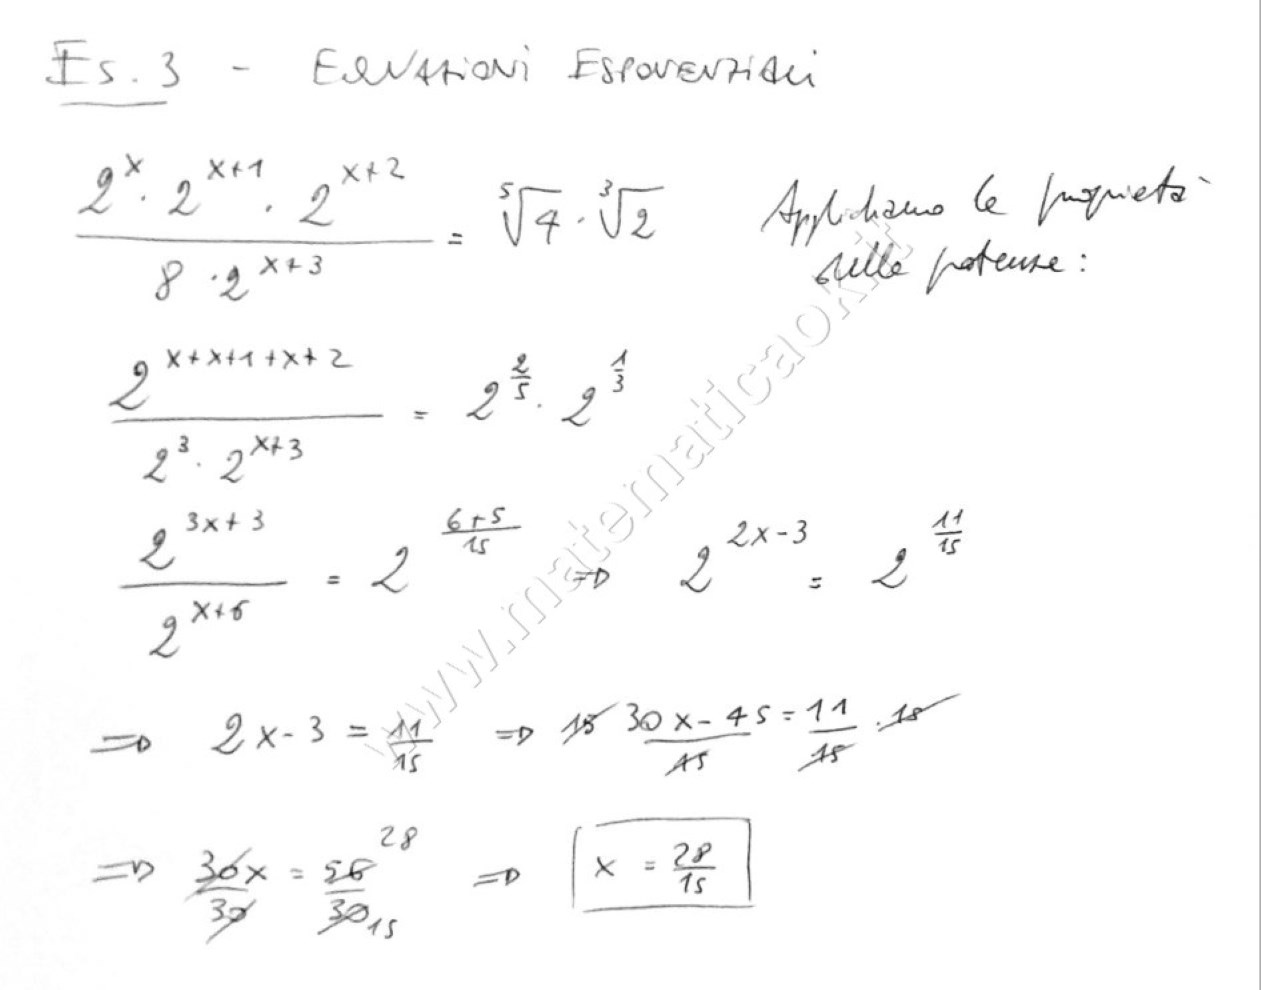 Es. 3 - EQUAZIONI ESPONENZIALI
2^x · 2^(x+1) · 2^(x+2) / 8 · 2^(x+3) = ⁵√4 · ³√2
Applichiamo le proprietà
delle potenze:
2^(x+x+1+x+2) / 2^3 · 2^(x+3) = 2^(2/5) · 2^(1/3)
2^(3x+3) / 2^(x+6) = 2^((6+5)/15) ⇒ 2^(2x-3) = 2^(11/15)
⇒ 2x-3 = 11/15 ⇒ 15 (30x-45)/15 = 11/15 · 15
⇒ 30x/30 = 56/30 28 15 ⇒ x = 28/15
www.matematicaok.it